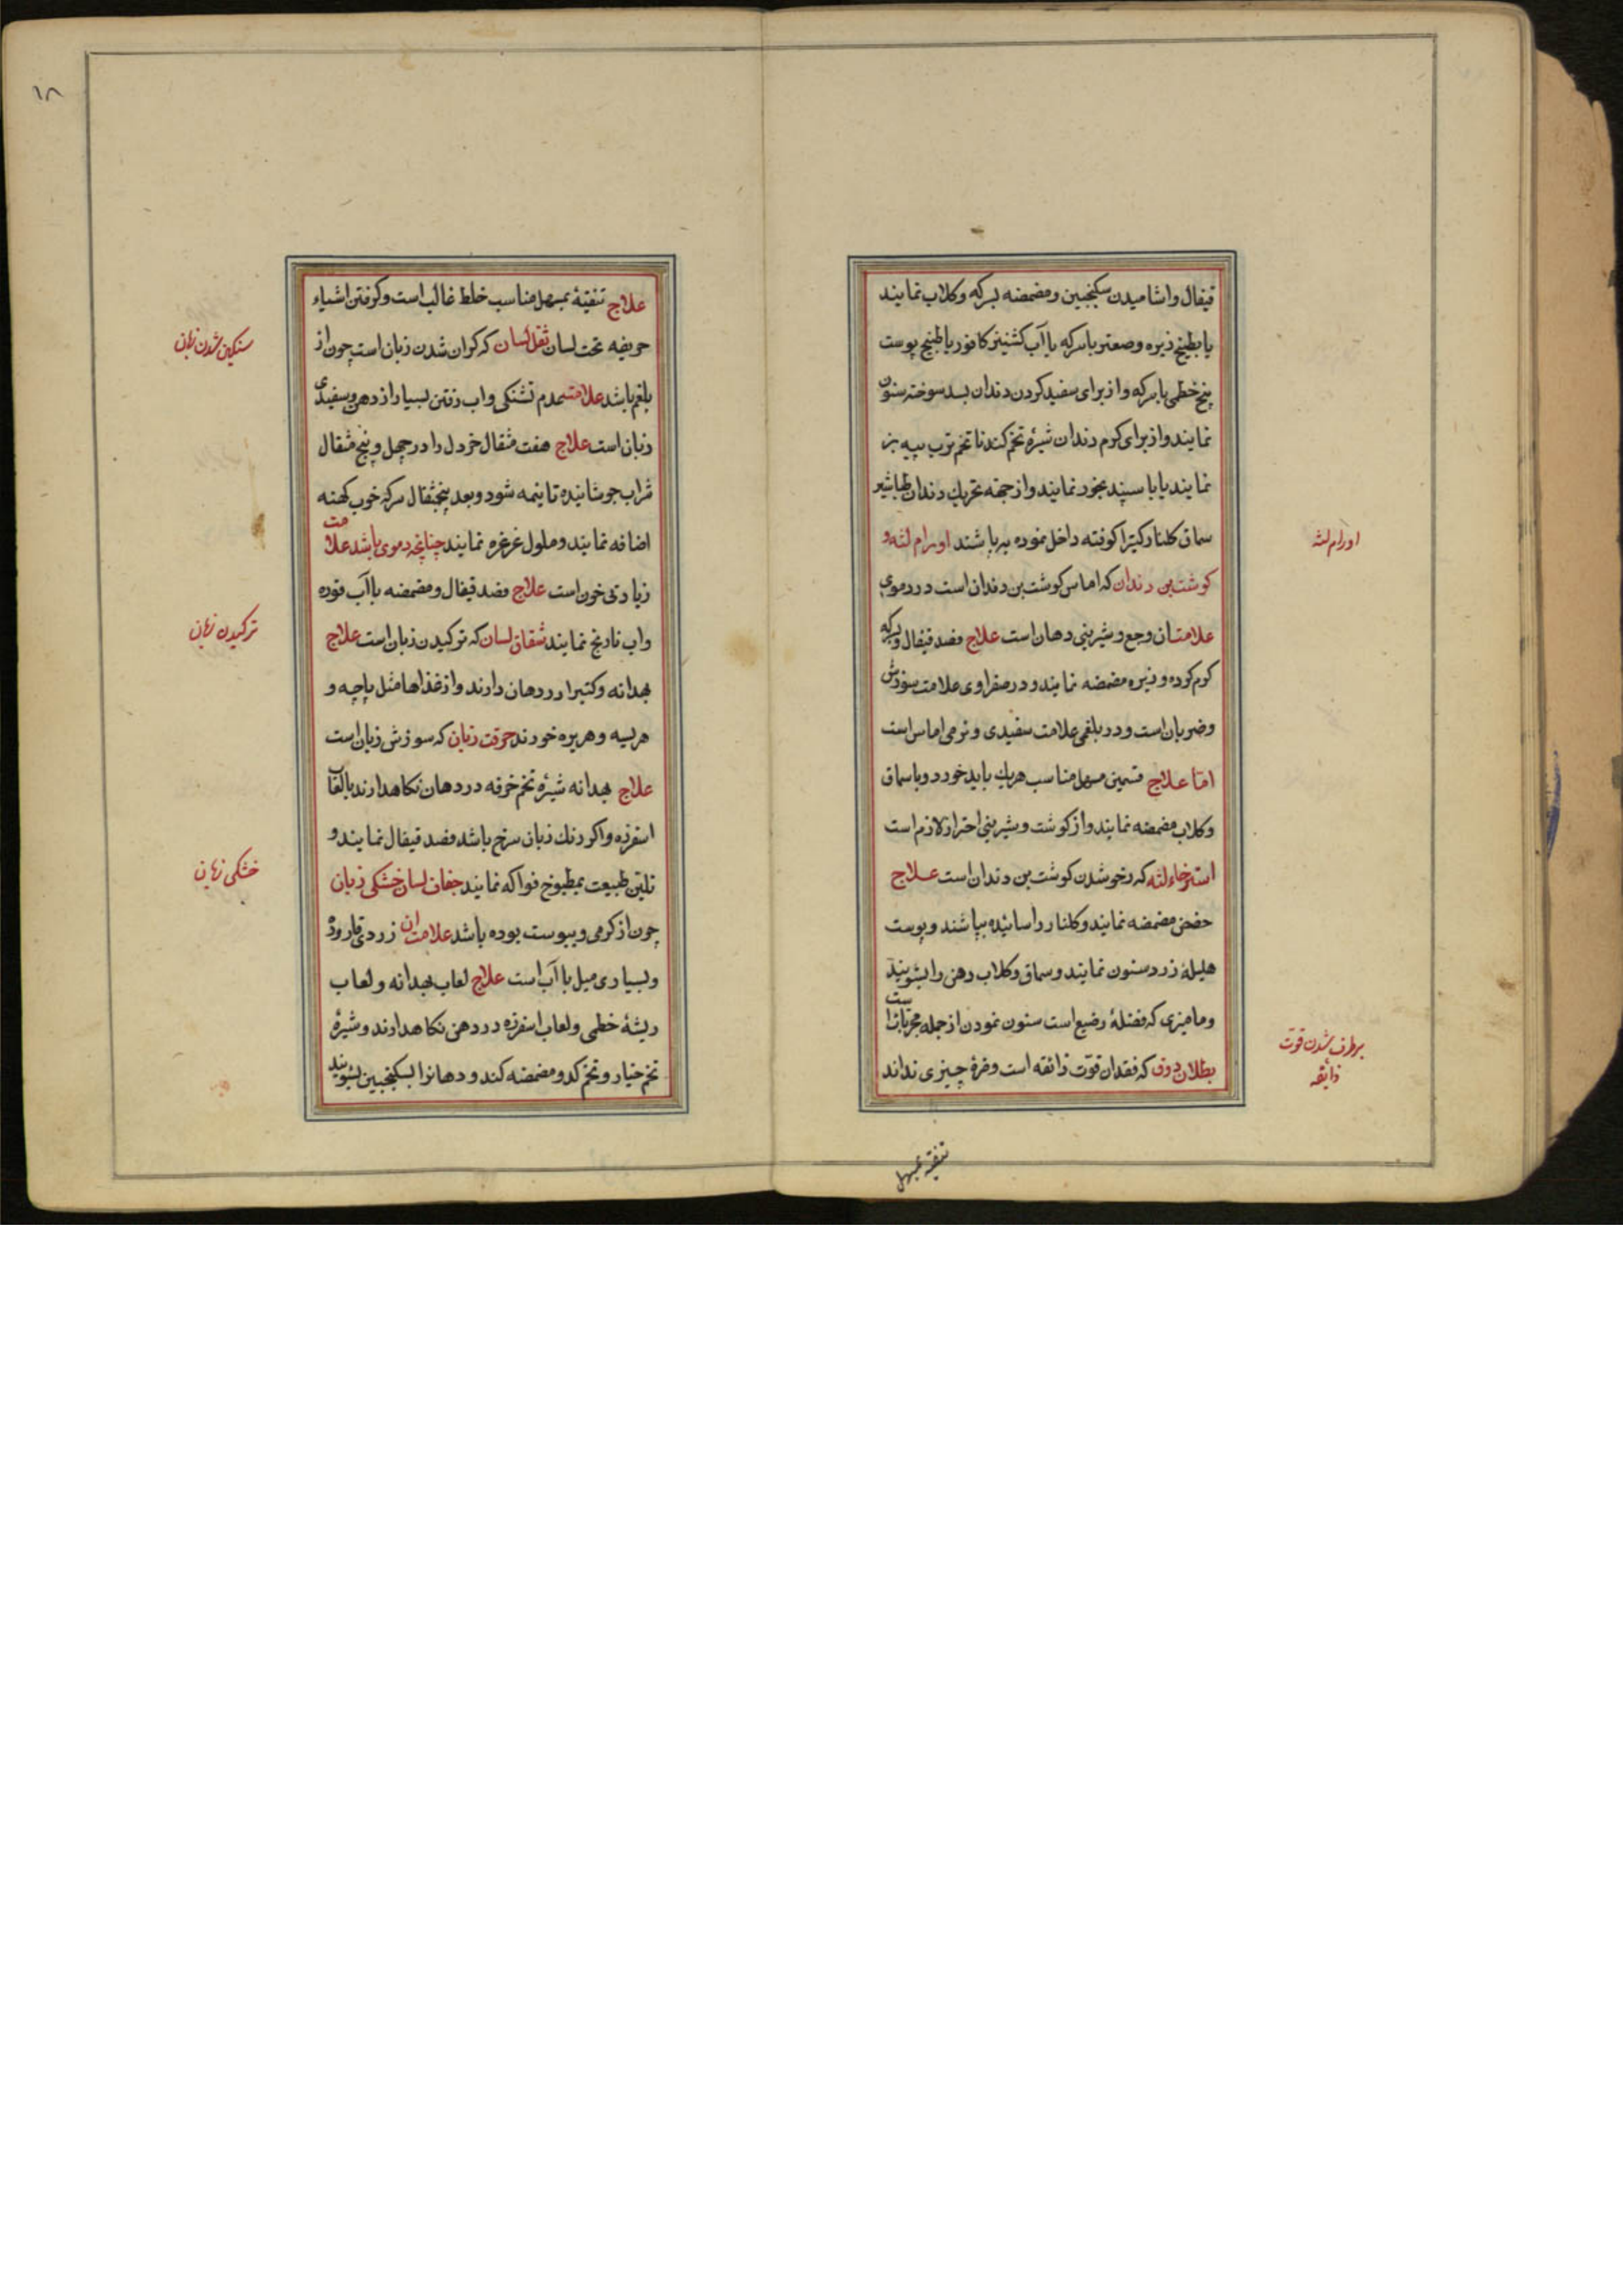 قیفال واشامیدن سکنجبین ومضمضه بسرکه وکلاب نمایند
یا بطبیخ زیره وصعتر باسرکه یا آب کشنیز کافور یا طبیخ پوست
بیخ خطمی باسرکه واز برای سفید کردن دندان بسد سوخته سنون
نمایند واز برای کرم دندان شیرهٔ تخم کندنا تخم ترب پیه بز
نمایند یا با سپند بخور نمایند واز جهه تحریك دندان طباشیر
سماق کلنار کتیرا کوفته داخل نموده بپاشند اورام لثه و
کوشت بن دندان که اماس کوشت بن دندان است در دموی
علامت ان وجع وشیرینی دهان است علاج فصد قیفال وسرکه
کرم کرده وزیره مضمضه نمایند ودر صفراوی علامت سوزش
وضربان است ودر بلغمی علامت سفیدی ونرمی اماس است
اما علاج قسمین مسهل مناسب هریك باید خورد وبا سماق
وکلاب مضمضه نمایند واز کوشت وشیرینی احتراز لازم است
استرخاء لثه که رخو شدن کوشت بن دندان است علاج
حضض مضمضه نمایند وکلنار را سائیده بپاشند وپوست
هلیلهٔ زرد سنون نمایند وسماق وکلاب دهن را بشویند
ومامیزی که فضلهٔ رضیع است سنون نمودن از جمله مجرباتست
بطلان ذوق که فقدان قوّت ذائقه است ومزهٔ چیزی نداند
اورام لثه
برطرف شدن قوت
ذایقه
تنقیه بمسهل
۱۸
علاج تنقیهٔ بمسهل مناسب خلط غالب است وکرفتن اشیاء
حریفه تحت لسان ثقل لسان که کران شدن زبان است چون از
بلغم باشد علامت عدم تشنکی واب رفتن بسیار از دهن وسفیدی
زبان است علاج هفت مثقال خردل را در چهل وپنج مثقال
شراب جوشانیده تا نیمه شود وبعد پنجمثقال سرکه خوب کهنه
اضافه نمایند وملول غرغره نمایند چنانچه دموی باشد علامت
زیادتی خون است علاج فصد قیفال ومضمضه باآب فوده
واب نارنج نمایند شقاق لسان که ترکیدن زبان است علاج
بهدانه وکتیرا در دهان دارند واز غذاها مثل پاچه و
هریسه وهریره خورند حرقت زبان که سوزش زبان است
علاج بهدانه شیرهٔ تخم خرفه در دهان نکاهدارند با لعاب
اسفرزه واکر رنك زبان سرخ باشد فصد قیفال نمایند و
تلیّن طبیعت بمطبوخ فواکه نمایند جفاف لسان خشکی زبان
چون از کرمی ویبوست بوده باشد علامت ان زردی قاروره
وبسیاری میل باآب است علاج لعاب بهدانه ولعاب
ریشهٔ خطمی ولعاب اسفرزه در دهن نکاهدارند وشیرهٔ
تخم خیار وتخم کدو مضمضه کند ودهانرا بسکنجبین بشویند
سنکین شدن زبان
ترکیدن زبان
خشکی زبان